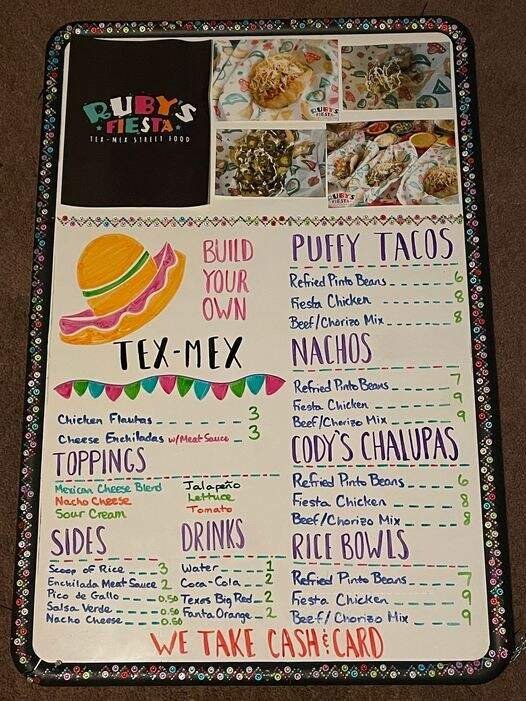 RUBY'S
FIESTA
TEX-MEX STREET FOOD
RUBY'S
FIESTA
RUBY'S
BUILD
YOUR
OWN
TEX-MEX
Chicken Flautas 3
Cheese Enchiladas w/Meat Sauce 3
TOPPINGS
Mexican Cheese Blend
Nacho Cheese
Sour Cream
Jalapeño
Lettuce
Tomato
SIDES
Scoop of Rice 3
Enchilada Meat Sauce 2
Pico de Gallo 0.50
Salsa Verde 0.50
Nacho Cheese 0.50
DRINKS
Water 1
Coca-Cola 2
Texas Big Red 2
Fanta Orange 2
PUFFY TACOS
Refried Pinto Beans 6
Fiesta Chicken 8
Beef/Chorizo Mix 8
NACHOS
Refried Pinto Beans 7
Fiesta Chicken 9
Beef/Chorizo Mix 9
CODY'S CHALUPAS
Refried Pinto Beans 6
Fiesta Chicken 8
Beef/Chorizo Mix 8
RICE BOWLS
Refried Pinto Beans 7
Fiesta Chicken 9
Beef/Chorizo Mix 9
WE TAKE CASH & CARD